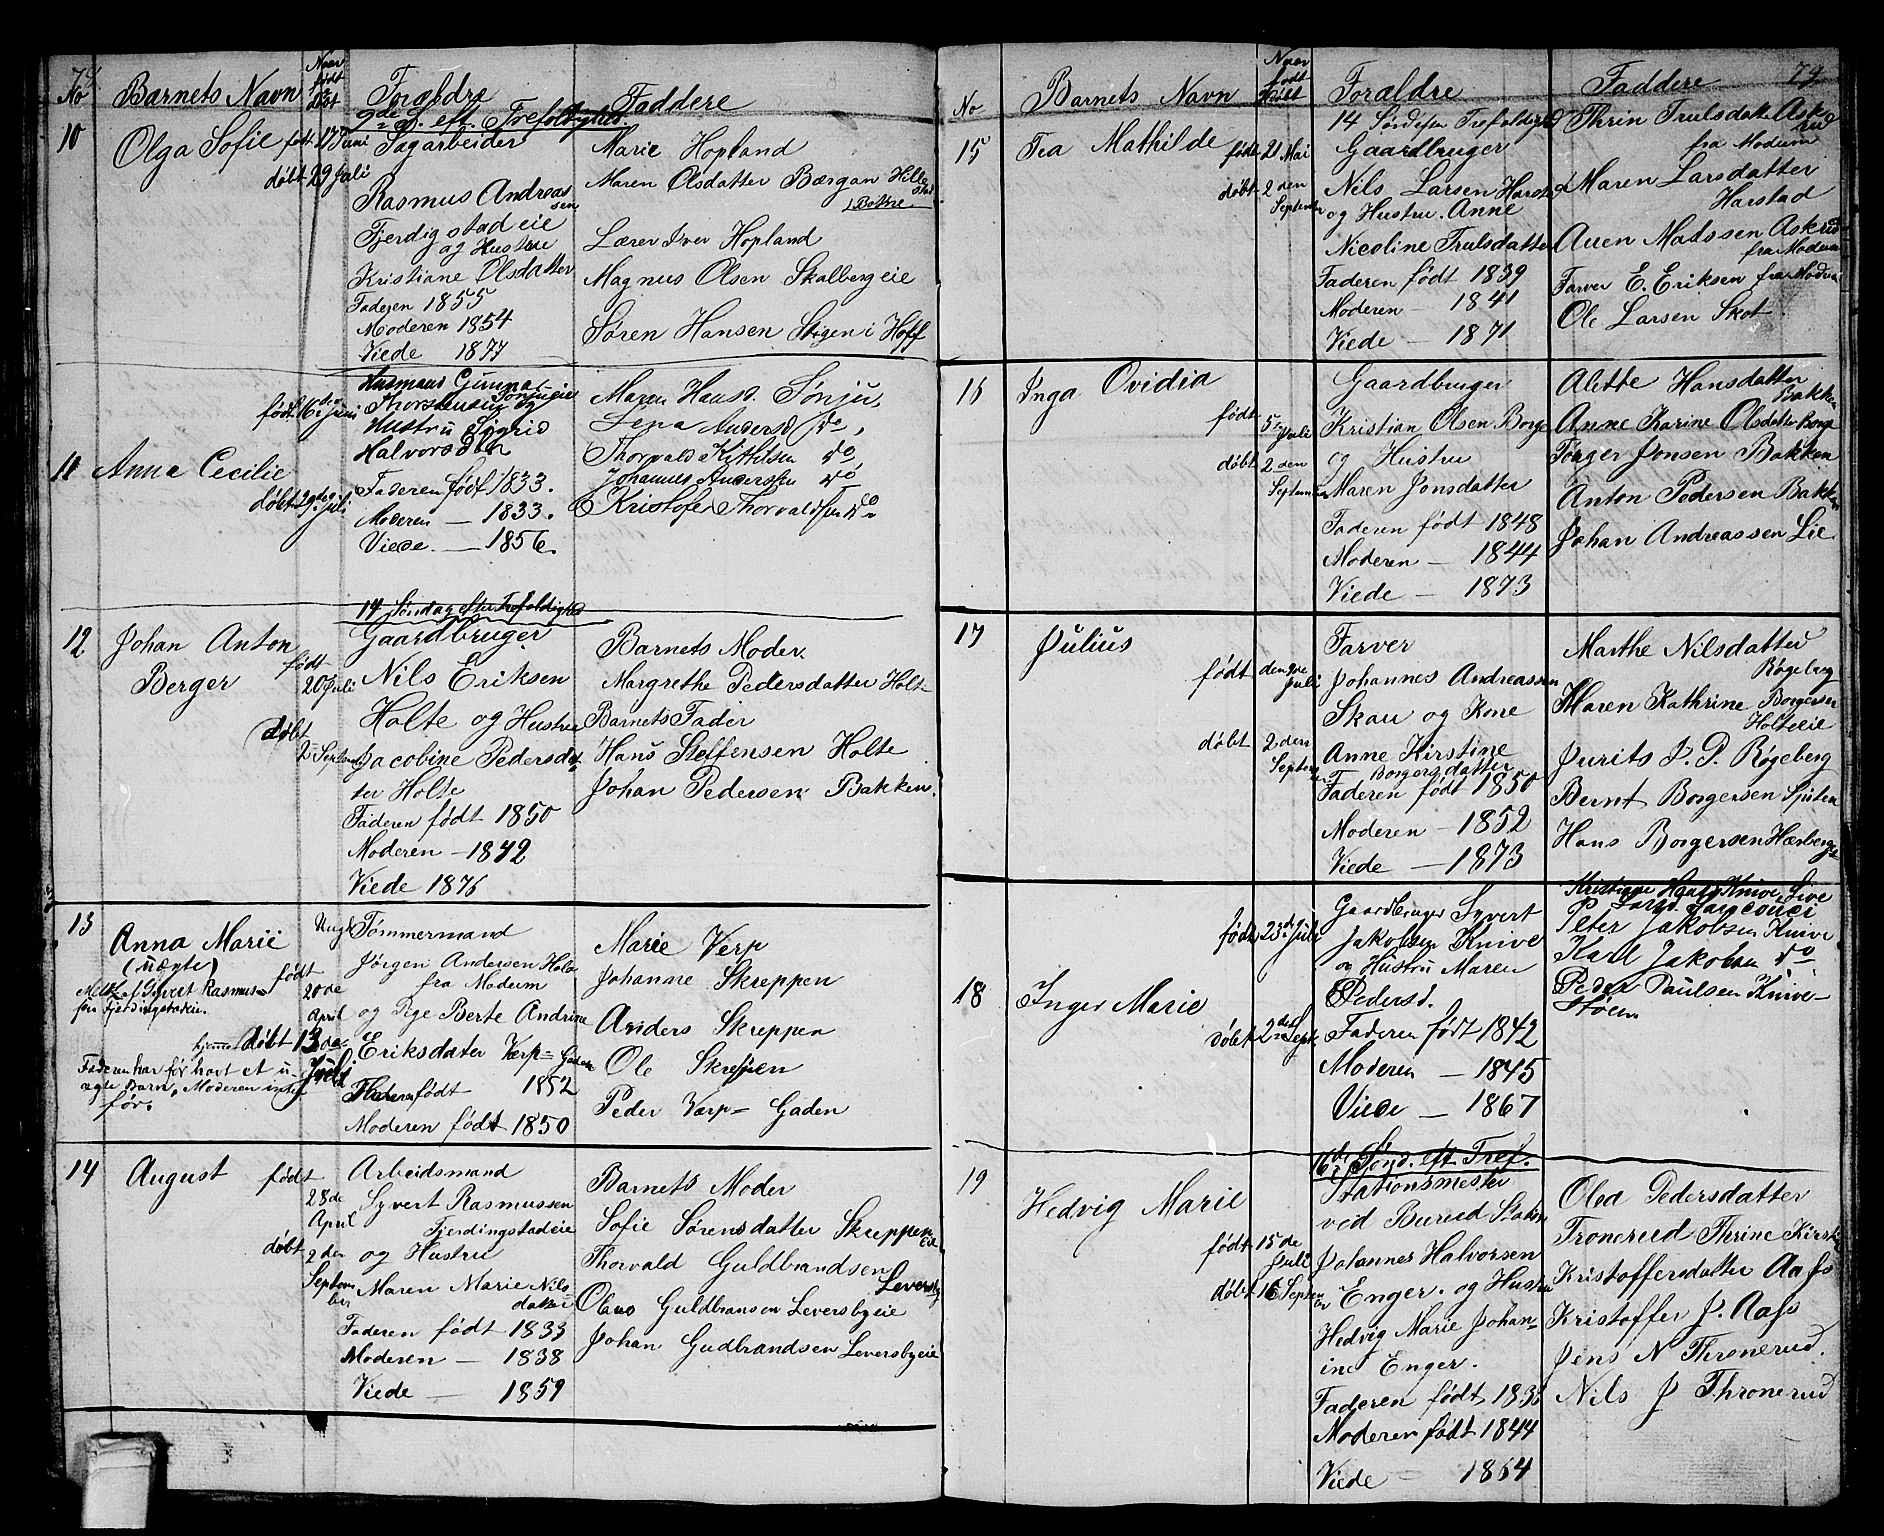 74
No
Barnets Navn
Naar født og døbt
Forældre
Faddere
9de S. eft. Trefoldighed.
10
Olga Sofie
født 17 Juni
døbt 29 Juli
Sagarbeider
Rasmus Andreas
sen
Fjerdigstadeie
og Hustru
Kristiane Olsdatter
Faderen 1855
Moderen 1854
Viede 1877
Marie Hopland
Maren Olsdatter Bærgan Hille
stad
i Botne
Lærer Iver Hopland
Magnus Olsen Skalbergeie
Søren Hansen Stigen i Hoff
11
Anna Cecilie
født 16de Juni
døbt 29de Juli
Husmand Gunnar
Thorstensen Sønjueie
og
Hustru Sigrid
Halvorsdtr
Faderen født 1833.
Moderen — 1833.
Viede — 1856.
Maren Hansd. Sønju,
Lena Andersd do,
Thorvald Kittilsen do
Johannes Anderssen do
Kristofer Thorvaldsen do
14 Søndag efter Trefoldighed
12
Johan Anton
Berger
født
20 Juli
døbt
2 Septem
Gaardbruger
Nils Eriksen
Holte og Hustru
Jacobine Pedersdat
ter Holte
Faderen født 1850
Moderen — 1842
Viede 1876
Barnets Moder
Margrethe Pedersdatter Holte
Barnets Fader
Hans Steffensen Holte
Johan Pedersen Bakken.
13
Anna Marie
(uægte)
født
20de
April
hjemme døbt 13de
Juli
Faderen har før havt et u-
ægte Barn, Moderen intet
før.
Ungk
Tømmermand
Jørgen Andersen
fra Modum
og Pige Berte Andrine
Eriksdatter Værp=Gaden
Faderen født 1852
Moderen født 1850
Marie Verp
Johanne Skreppen
Anders Skreppen
Ole Skreppen
Peder Værp=Gaden
14
August
født
28de
April
døbt
2den
Septem
ber
Arbeidsmand
Syvert Rasmussen
Fjerdingstadeie
og Hustru
Maren Marie Nils
datter
Faderen født 1833
Moderen — 1838
Viede — 1859
Barnets Moder
Sofie Sørensdatter Skreppen
eie
Thorvald Guldbrandsen
Leversby
Olaus Guldbransen Leversbyeie
Johan Gudbrandsen Leversbyeie
No
Barnets Navn
Naar født døbt
Forældre
Faddere
74
14 Sønd efter Trefoldighed
15
Tea Mathilde
født 21 Mai
døbt 2den
September
Gaardbruger
Nils Larsen Harstad
og Hustru Anne
Nicoline Trulsdatter
Faderen født 1839
Moderen — 1841
Viede — 1871
Thrin Trulsdatter Ask
rud
fra Modum
Maren Larsdatter
Harstad
Auen Madssen Askrud
fra Modum
Farver E. Eriksen fra Modum
Ole Larsen Skot.
16
Inga Ovidia
født 5te
Juli
døbt 2den
September
Gaardbruger
Kristian Olsen Borge
og Hustru
Maren Jonsdatter
Faderen født 1848
Moderen — 1844
Viede — 1873
Alette Hansdatter
Bakken
Anne Karine Olsdatter Borge
Torger Jonsen Bakken
Anton Pedersen Bakken
Johan Andreassen Lie
17
Julius
født den
Juli
døbt 2den
September
Farver
Johannes Andreassen
Skau og Kone
Anne Kirstine
Borgersdatter
Faderen født 1850
Moderen — 1852
Viede — 1873
Marthe Nilsdatter
Røgeberg
Maren Kathrine Borgersen
Holteeie
Jurits J. P. Røgeberg
Bernt Borgersen
Hans Borgersen
18
Inger Marie
født 23de Juli
døbt 2den Sept
Gaardbruger Syvert
Jakobsen Knive
og Hustru Maren
Pedersd.
Faderen født 1842
Moderen — 1845
Viede — 1867
Kristiane Hansd Knive, Sive
Larsd.
Peter Jakobsen Knive
Karl Jakobsen do
Peder Paulsen Knive-
støen
16de Sønd. eft. Tref.
19
Hedvig Marie
født 15de
Juli
døbt 16 Septem
ber
Stationsmester
ved Burud Station
Johannes Halvorsen
Enger. og Hustru
Hedvig Marie Johan=
ine Enger.
Faderen født 1833
Moderen født 1844
Viede — 1864
Olea Pedersdatter
Tronerud Thrine Kirst
Kristoffersdatter Aas
Kristoffer J. Aas
Jens N Thronerud.
Nils J Thronerud